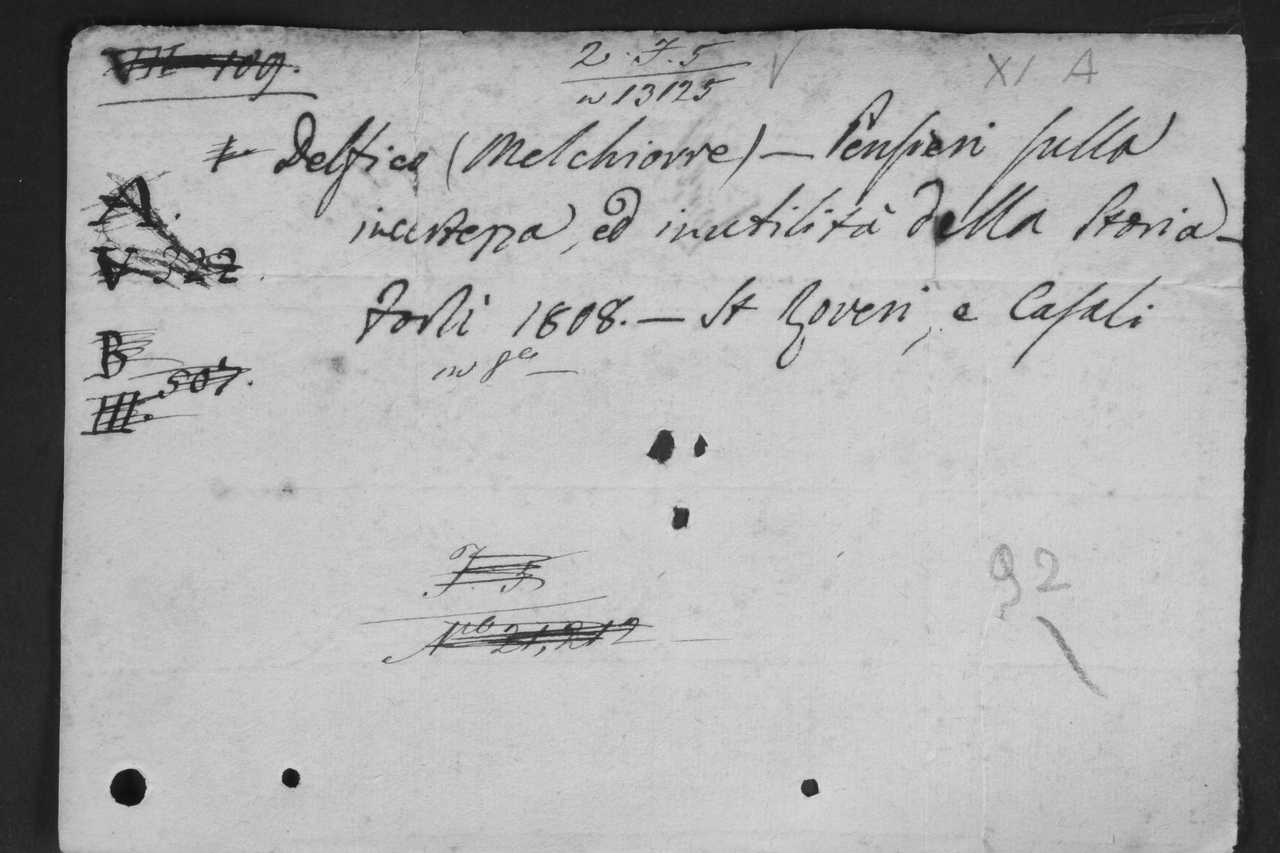 VII 109.
2. F. 5
n 13125
V
XI A
Delfico (Melchiorre) — Pensieri sulla
incertezza, ed inutilità della Storia —
Forlì 1808. — St Roveri, e Casali
in 8º —
A.
V 322.
B
III. 507.
F. 5
Nº 21,212
92